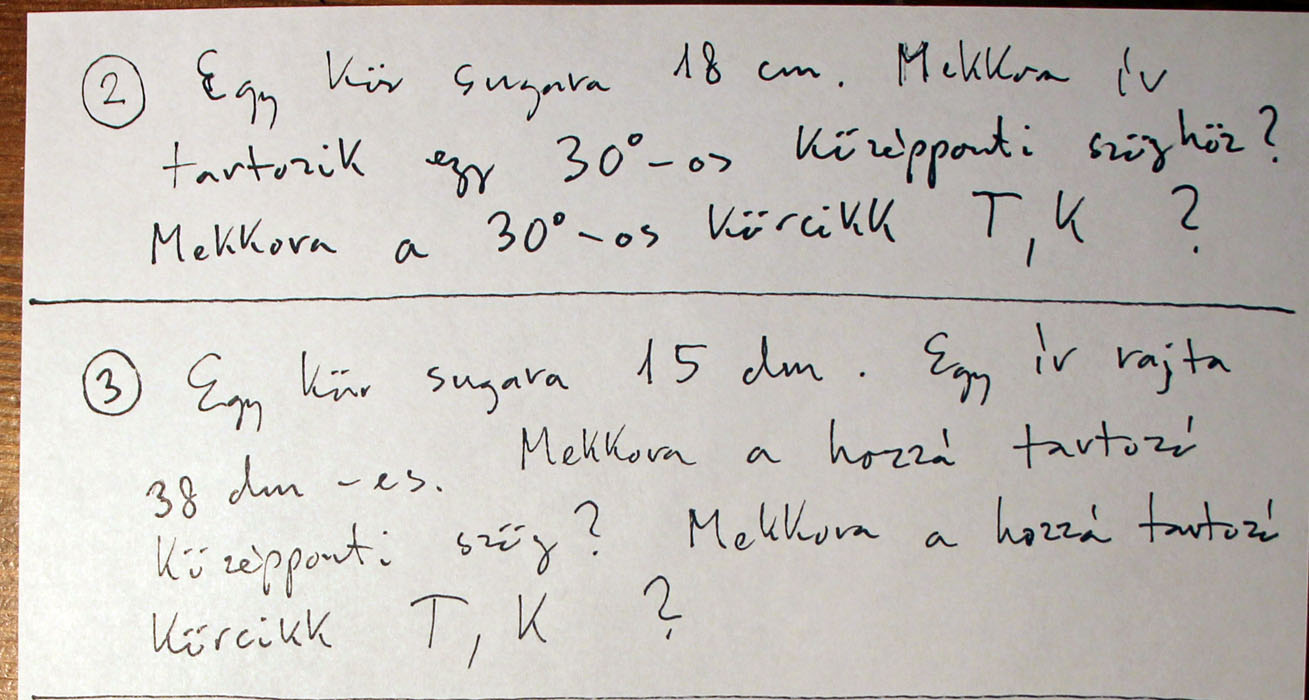 ② Egy kör sugara 18 cm. Mekkora ív
tartozik egy 30°-os középponti szöghöz?
Mekkora a 30°-os körcikk T, K ?
③ Egy kör sugara 15 dm. Egy ív rajta
38 dm-es. Mekkora a hozzá tartozó
középponti szög? Mekkora a hozzá tartozó
körcikk T, K ?